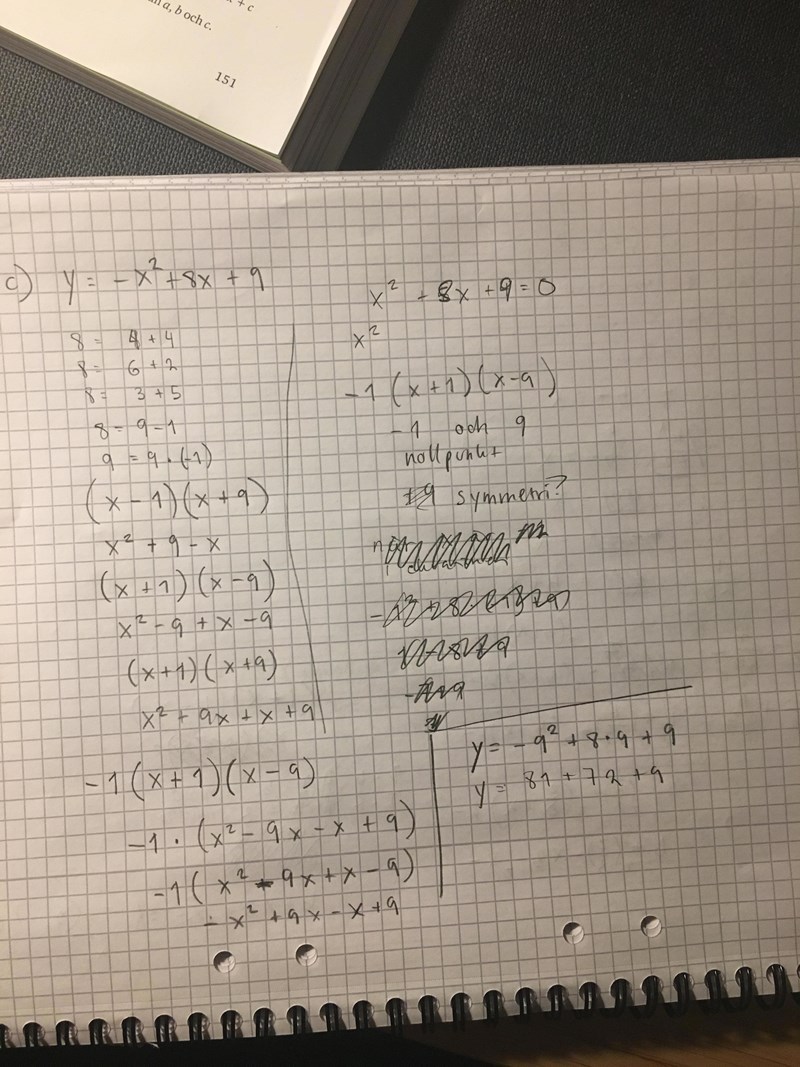 x + c
a, b och c.
151
c) y = -x² + 8x + 9
8 = 4 + 4
8 = 6 + 2
8 = 3 + 5
8 = 9 - 1
9 = 9 · (-1)
(x - 1)(x + 9)
x² + 9 - x
(x + 1)(x - 9)
x² - 9 + x - 9
(x + 1)(x + 9)
x² + 9x + x + 9
-1(x + 1)(x - 9)
-1 · (x² - 9x - x + 9)
-1(x² - 9x + x - 9)
- x² + 9x - x + 9
x² + 8x + 9 = 0
x²
-1(x + 1)(x - 9)
-1 och 9
nollpunkt
symmetri?
y = -9² + 8 · 9 + 9
y = 81 + 72 + 9